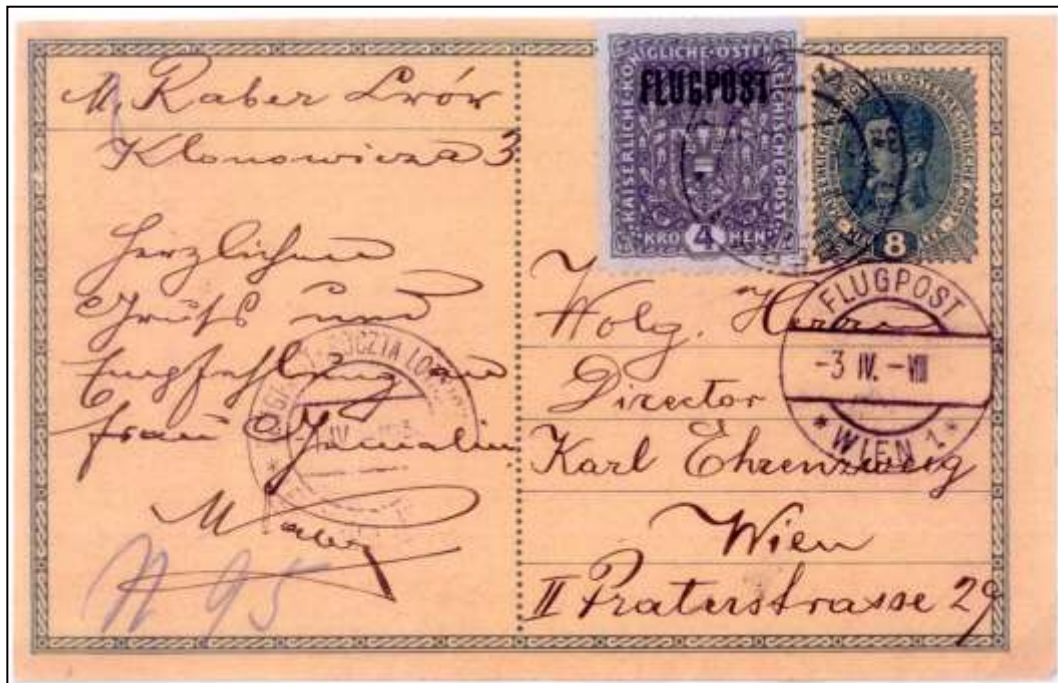 M. Raber Lwów
Klonowicza 3
Herzlichen
Gruß und
Empfehlung an
Frau Gemalin
N 95
KAISERLICHE KÖNIGLICHE ÖSTERREICHISCHE POST
FLUGPOST
KRONEN
4
8
FLUGPOST
-3 IV. - VIII
* WIEN 1 *
POCZTA LOT
IV
Wolg. Herrn
Director
Karl Ehrenzweig
Wien
II Praterstrasse 29